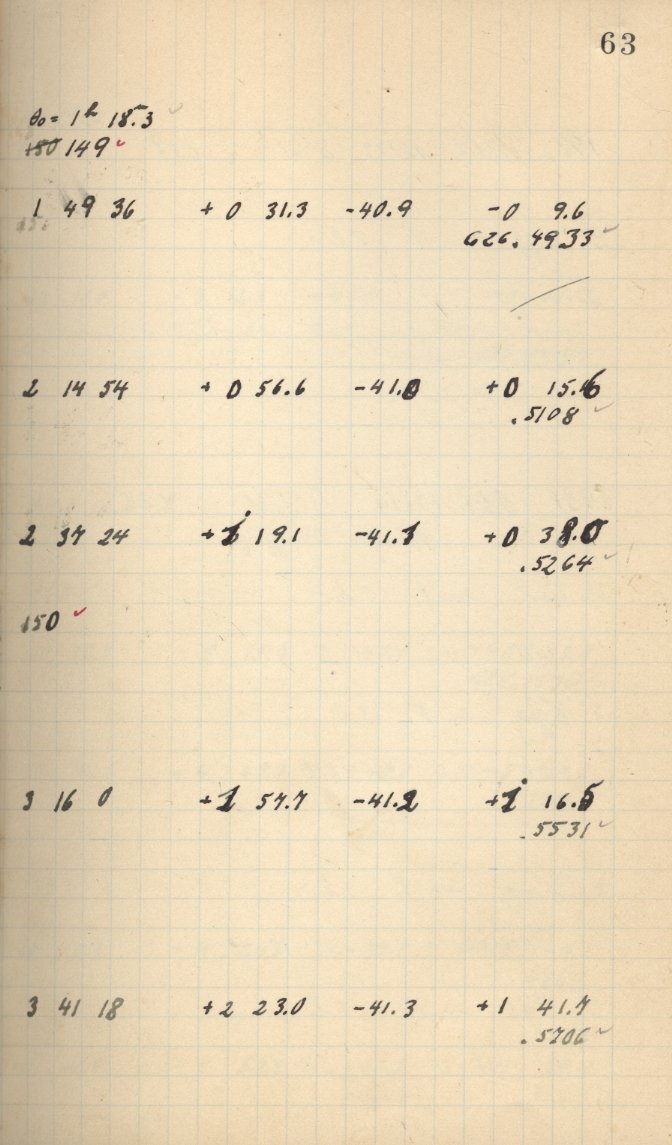 63
θ₀ = 1ʰ 18.3
149
1 49 36 + 0 31.3 -40.9 -0 9.6
626.4933
2 14 54 + 0 56.6 -41.0 +0 15.6
.5108
2 37 24 +1 19.1 -41.1 +0 38.0
.5264
150
3 16 0 +1 57.7 -41.2 +1 16.5
.5531
3 41 18 +2 23.0 -41.3 +1 41.7
.5706